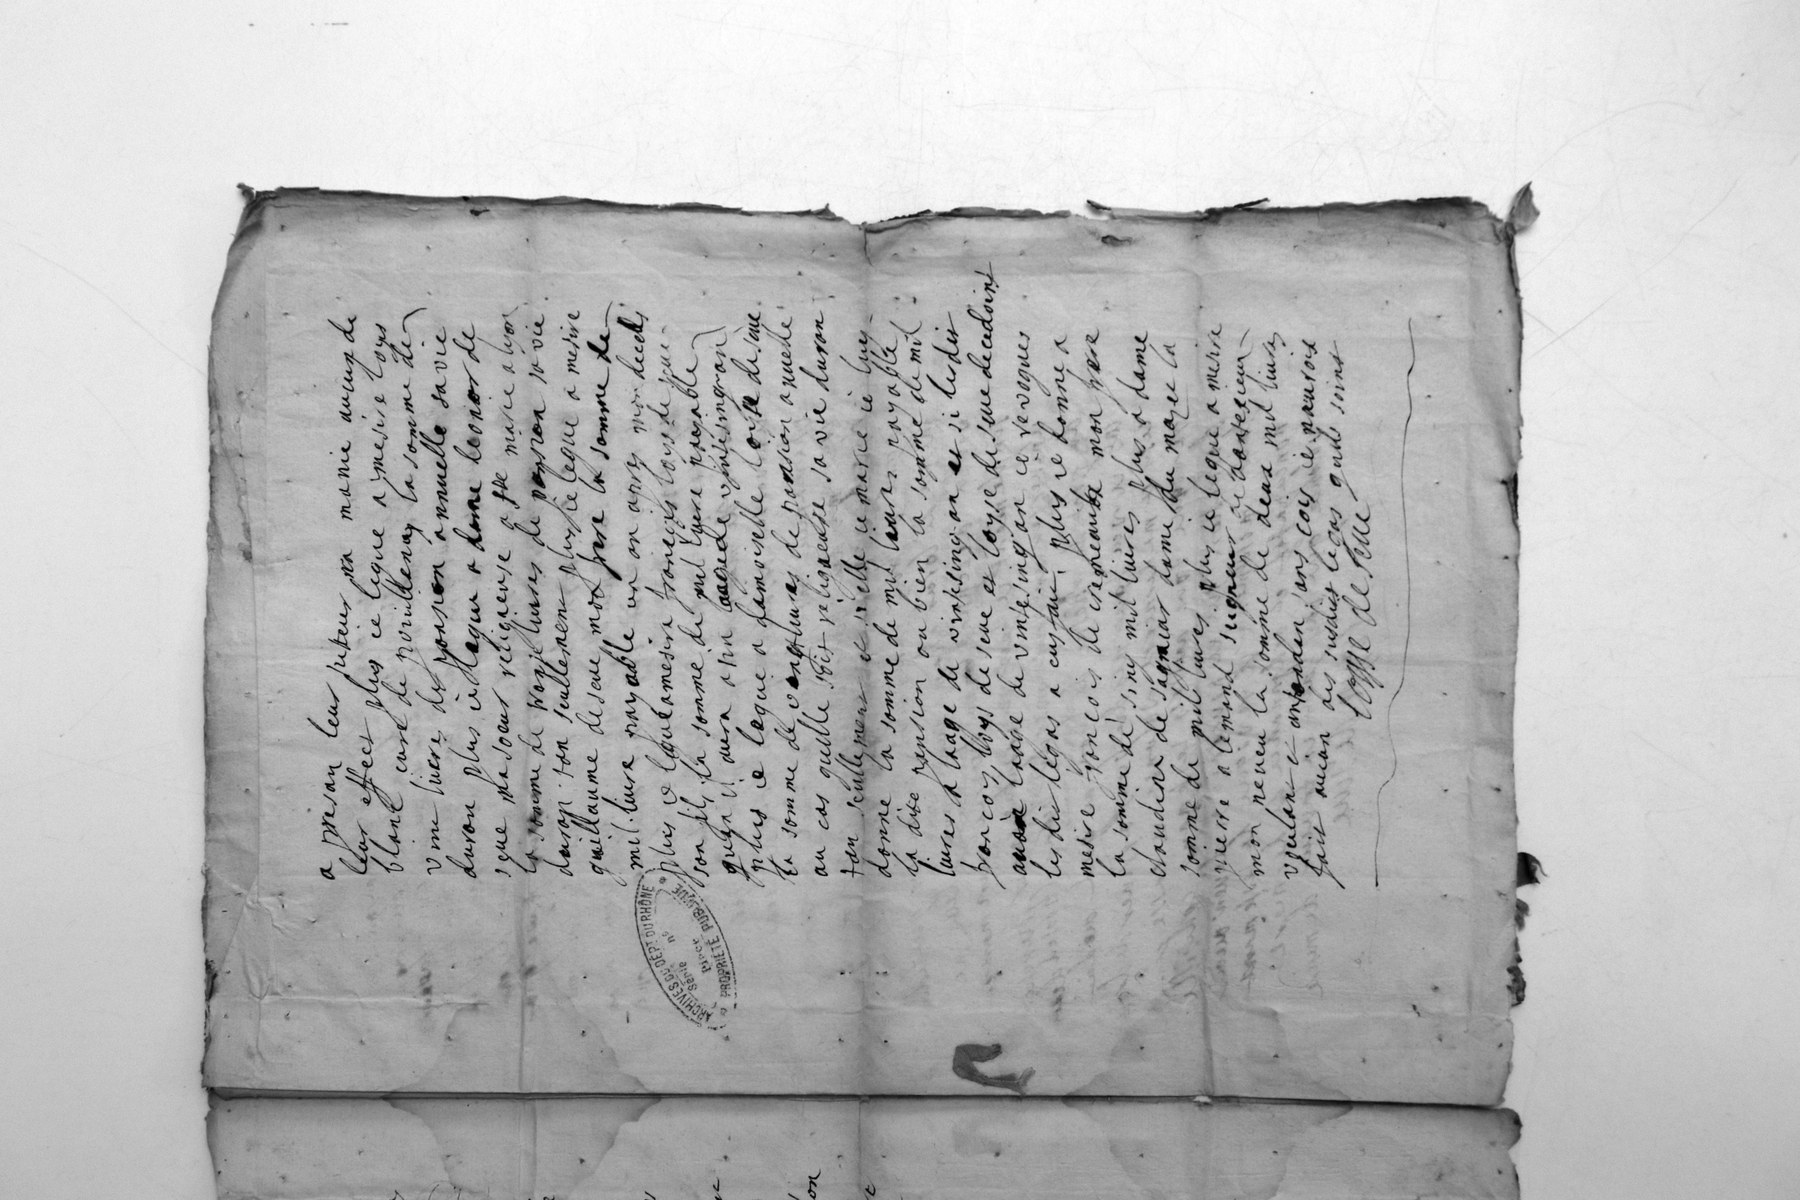 a presan leur sortir en manie aucune de
leur effect plus ie legue a mesire loys
blanc curé de pouillenay la somme de
vint livres de pansion annuelle sa vie
duran plus ie legue a dame leonor de
seue ma soeur religieuse a ste marie a lyon
la somme de vint livres de pansion sa vie
duran tan seullement plus ie legue a mesire
guillaume de seue mon frere la somme de
mil livre payable un an apres mon deceds
plus ie legue a mesire francois loys de seue
son fils la somme de mil livre payable
quan il aura a son aage de vintsing an
plus ie legue a damoiselle loise de seue
la somme de vent livres de pansion annuelle
au cas quelle soit religieuse sa vie duran
tan seullement et si elle ce marie ie luy
donne la somme de mil livres payable
la dite pension ou bien la somme de mil
livres a laage de vintsing an et si lesdis
francoys loys de seue et loyse de seue decedoint
avant laage de vintsing an ie revoques
les dis legas a eus fait, plus ie donne a
mesire francois de cremeaulx mon frere
la somme de sing mil livres plus a dame
claudine de sagnear dame du mazel la
somme de mil livres plus ie legue a mesire
pierre alemand seigneur
mon neveu la somme de deux mil livres
voulant et antandan sans cois ie naurois
fait aucun des susdits legas quils soint
loysse de seue
ARCHIVES DU DEPT DU RHÔNE
Série n°
Pièce
PROPRIÉTÉ PUBLIQUE